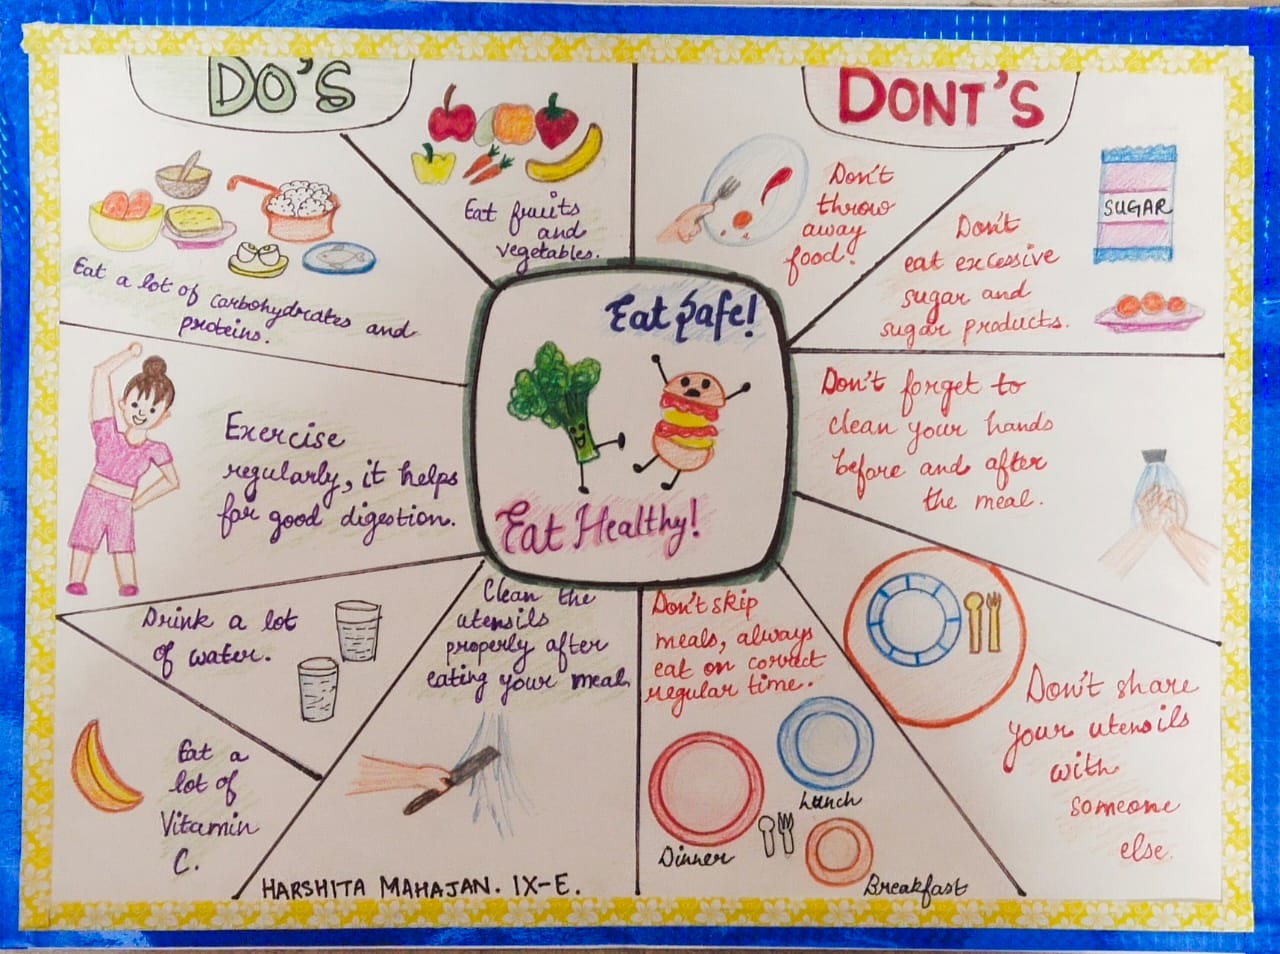 DO'S
Eat fruits
and
vegetables.
Eat a lot of carbohydrates and
proteins.
Exercise
regularly, it helps
for good digestion.
Drink a lot
of water.
Eat a
lot of
Vitamin
C.
Clean the
utensils
properly after
eating your meal
HARSHITA MAHAJAN. IX-E.
Eat Safe!
Eat Healthy!
DONT'S
Don't
throw
away
food.
Don't
eat excessive
sugar and
sugar products.
SUGAR
Don't forget to
clean your hands
before and after
the meal.
Don't share
your utensils
with
someone
else.
Don't skip
meals, always
eat on correct
regular time.
Lunch
Dinner
Breakfast